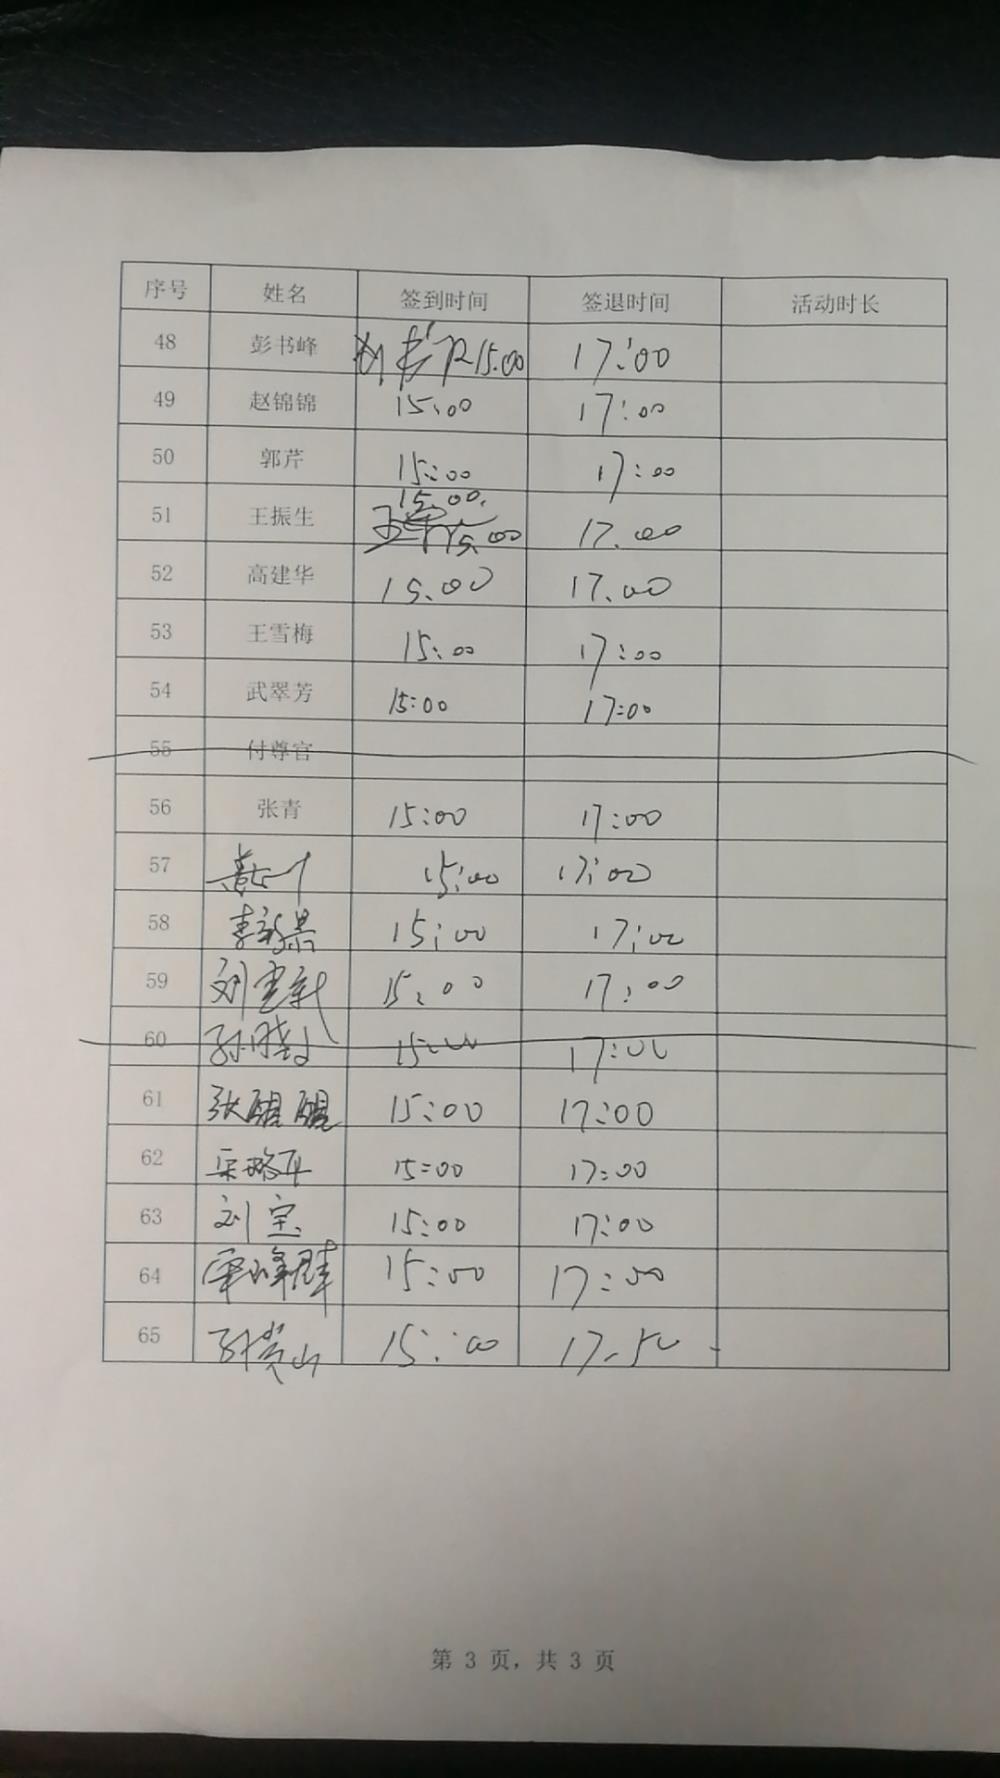 序号 姓名 签到时间 签退时间 活动时长
48 彭书峰 15.00 17:00
49 赵锦锦 15:00 17:00
50 郭芹 15:00 17:00
51 王振生 15.00. 15.00 17.00
52 高建华 15.00 17.00
53 王雪梅 15:00 17:00
54 武翠芳 15:00 17:00
55 付尊官
56 张青 15:00 17:00
57 15:00 17:00
58 李 15:00 17:00
59 刘 15:00 17:00
60 孙晓 15:00 17:00
61 张醒醒 15:00 17:00
62 15:00 17:00
63 刘宝 15:00 17:00
64 15:00 17:00
65 15:00 17.50
第 3 页，共 3 页